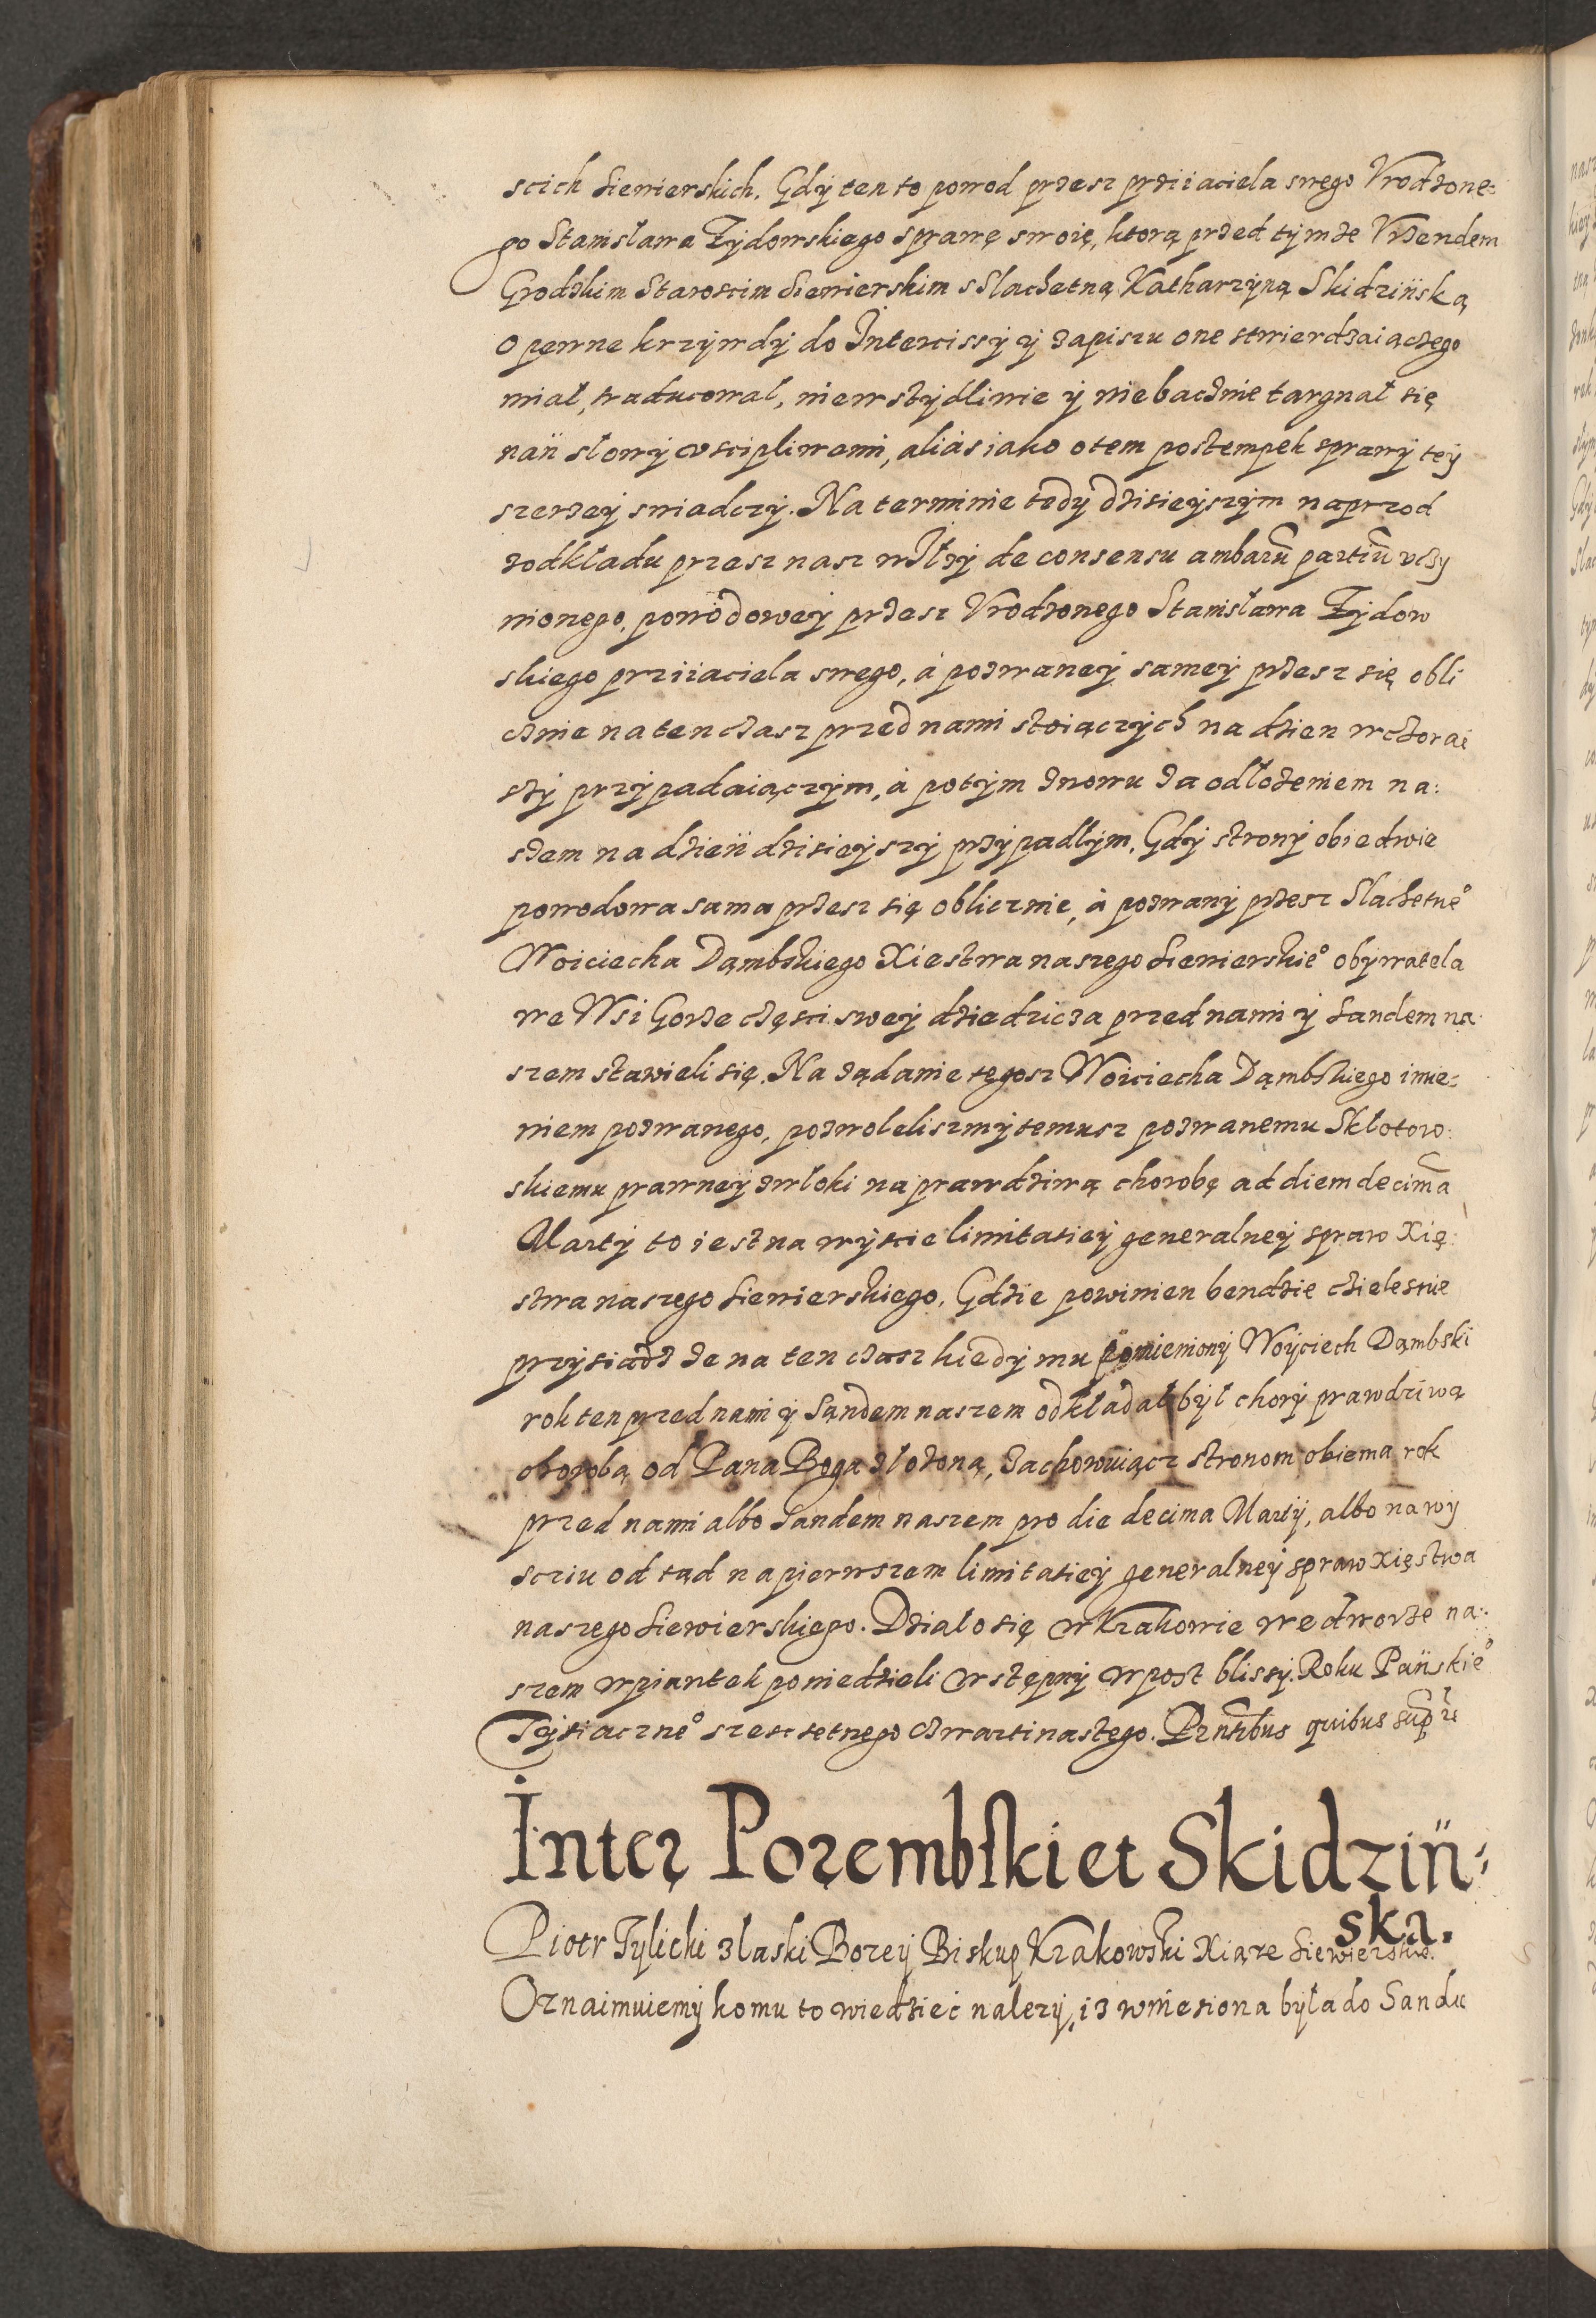 scich Siewierskich. Gdÿ ten to powod przesz prziiaciela swego Vrodzone:
go Stanisława Zÿdowskiego sprawę swoię, ktorą przed tÿmze Vrzendem
Grodzkim Staroscim Siewierskim s Slachetną Katharzÿną Skidzińską
O pewne krzÿwdÿ do Intercissÿ ÿ zapiszu one stwierdzaiączego
miał, traducował, niewstÿdliwie ÿ niebacznie targnał się
nań słowÿ vscipliwemi, aliàs iako o tem postempek sprawÿ teÿ
szerzeÿ swiadczÿ. Na terminie tedÿ dzisieÿszÿm naprzod
zodkładu przesz nasz w Iłzÿ de consensu ambarū partiū vczÿ
nionego, powodoweÿ przesz Vrodzonego Stanisława Zÿdow
skiego prziiaciela swego, à pozwaneÿ sameÿ przesz się obli
cznie na ten czasz przed nami stoiączÿch na dzien wczorai
szÿ przÿpadaiączÿm, à potÿm znowu za odłozeniem na:
szem na dzień dzisieÿszÿ przÿpadłÿm. Gdÿ stronÿ obiedwie
powodowa sama przesz się oblicznie, à pozwanÿ przesz Slachetne°
Woiciecha Dąmbskiego Xiestwa naszego Siewierskie° obÿwatela
we Wsi Gorze części sweÿ dziedzicza przed nami ÿ Sandem na
szem stawieli się. Na ządanie tęgosz Woiciecha Dąmbskiego imie:
niem pozwanego, pozwoleliszmÿ temusz pozwanemu Skłotow:
skiemu prawneÿ zwłoki na prawdziwą chorobę ad diem decimā
Martÿ to iest na wÿscie limitatieÿ generalneÿ spraw Xię:
stwa naszego Siewierskiego. Gdzie powinien bendzie czielesnie
przÿsiądz ze na ten czasz kiedÿ mu pomienionÿ Woÿciech Dąmbski
rok ten przed nami ÿ Sąndem naszem odkładał bÿł chorÿ prawdziwą
chorobą od Pana Boga złozoną, zachowuiącz stronom obiema rok
przed nami albo Sandem naszem pro die decima Martÿ, albo na wÿ
sciu od tąd napierwszem limitatieÿ generalneÿ spraw Xięstwa
naszego Siewierskiego. Działo się w Krakowie we dworze na:
szem w piantek po niedzieli wstępnÿ w post blissÿ. Roku Pańskie°
Tÿsiączne° szescsetnego czwartinastego. Prntibus quibus supr
Inter Porembski et Skidziń:
ska.
Piotr Tylicki z laski Bozeÿ Biskup Krakowski Xiąze Siewierskie.
Oznaimuiemÿ komu to wiedzieć nalezÿ, iz wniesiona bÿła do Sandu